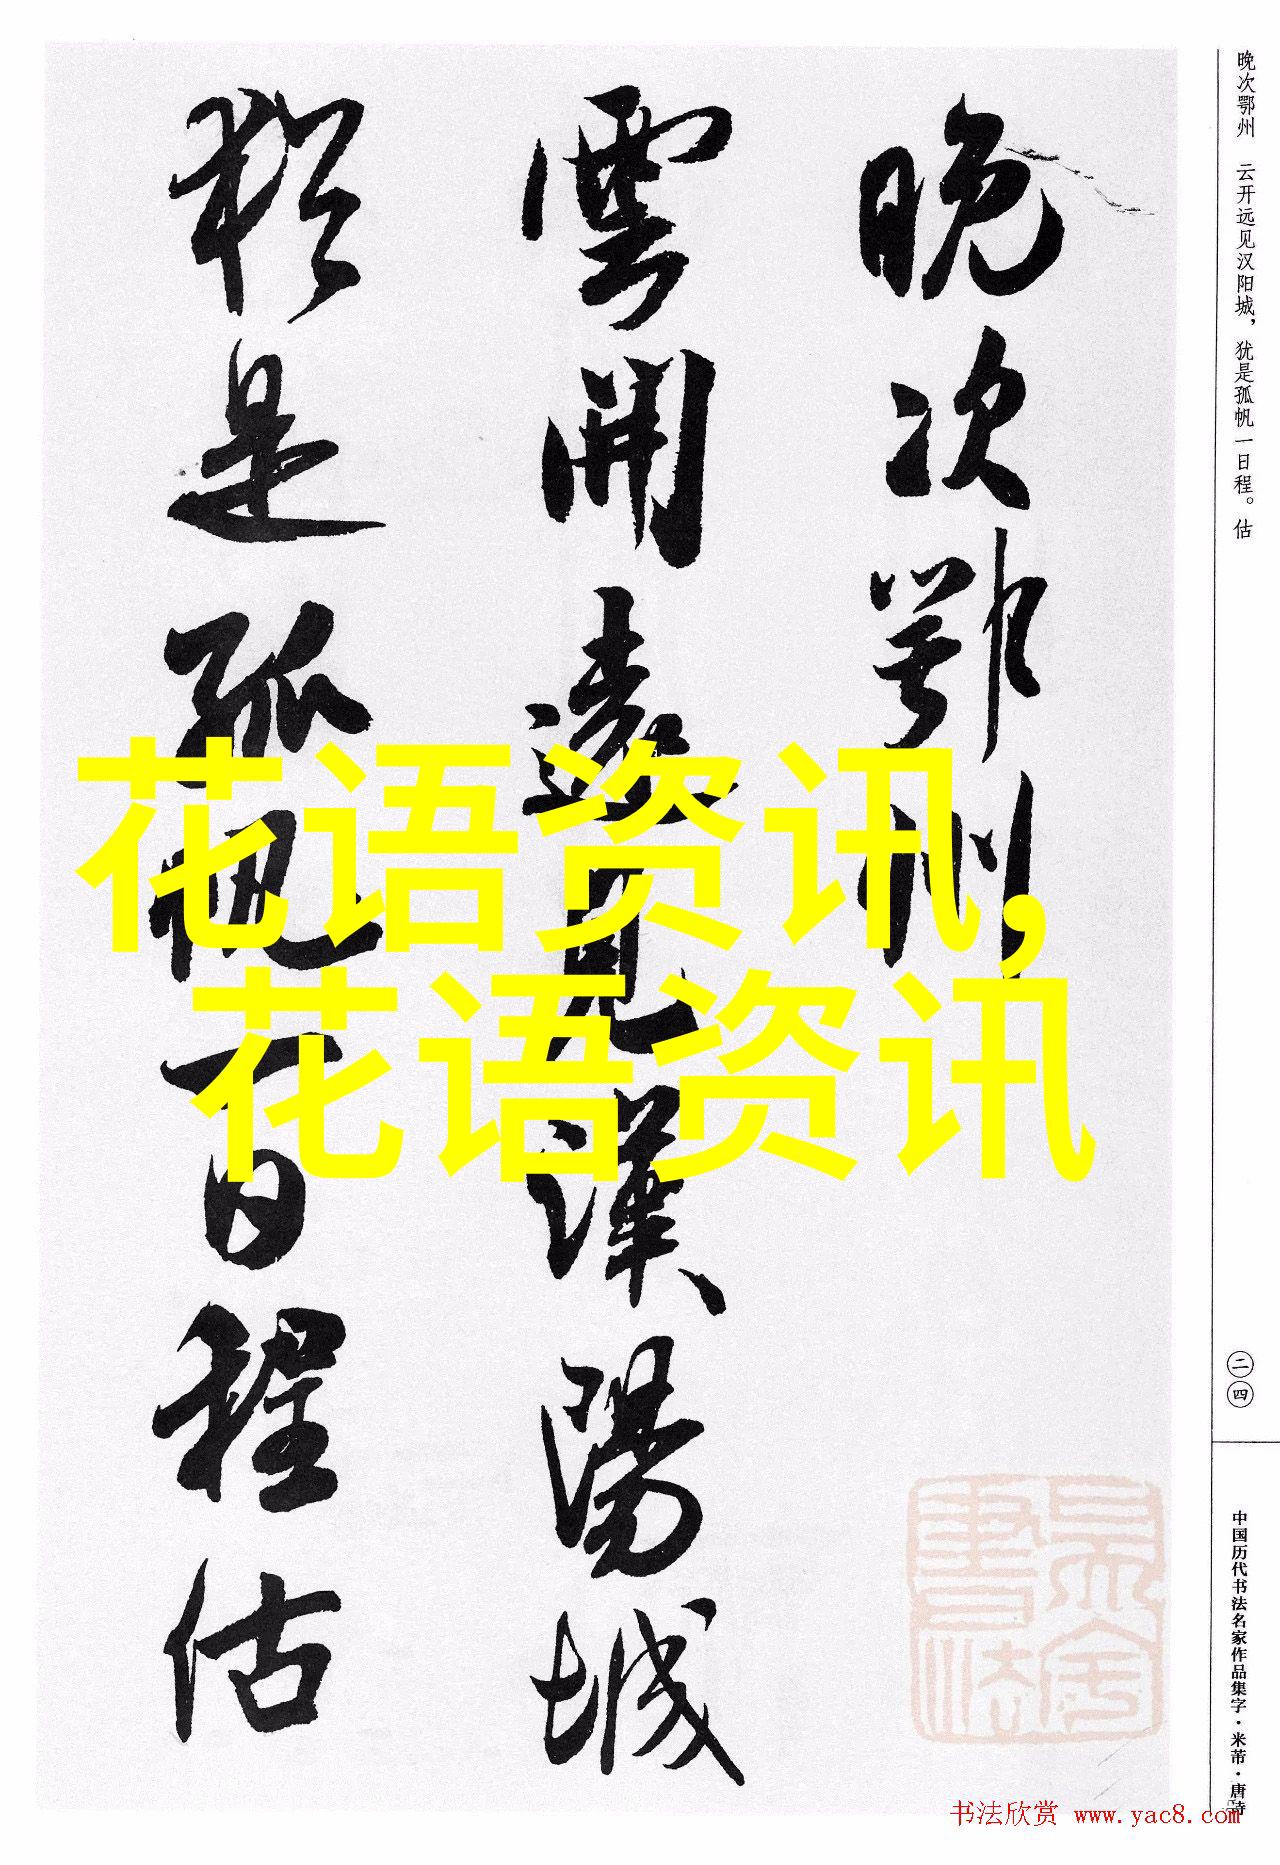 晚次鄂州　云开远见汉阳城，犹是孤帆一日程。估
晚次鄂州
雲開遠見漢陽城
猶是孤帆一日程估
花语资讯,
花语资讯
二四
中国历代书法名家作品集字·米芾·唐诗
书法欣赏 www.yac8.com